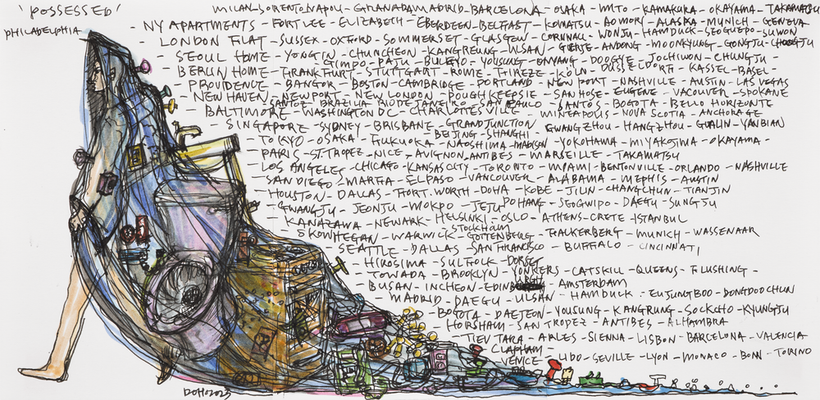 'POSSESSED'
MILAN - SORENTO NAPOLI - GRANADA MADRID - BARCELONA - OSAKA - MITO - KAMAKURA - OKAYAMA - TAKAMATSU
PHILADELPHIA - NY APARTMENTS - FORT LEE - ELIZABETH - EBERDEEN - BELFAST - KOMATSU - AOMORI - ALASKA - MUNICH - GENEVA
- LONDON FLAT - SUSSEX - OXFORD - SOMMERSET - GLASGOW - CORNWALL - WONJU - HAMDUCK - SEOGUEPO - SUWON
- SEOUL HOME - YONGIN - CHUNCHEON - KANGREUNG - ULSAN - ANDONG - MOONKYUNG - GONGJU -
GIMPO - PAJU - YOUSUNG - ENYANG - DOOGYE - JOCHIWON - CHUNGJU -
BERLIN HOME - FRANKFURT - STUTTGART - ROME - FIREZE - KÖLN - DUSSELDORF - KASSEL - BASEL -
PROVIDENCE - BANGOR - BOSTON - CAMBRIDGE - PORTLAND - NEW PORT - NASHVILLE - AUSTIN - LAS VEGAS
- NEW HAVEN - NEWPORT - NEW LONDON - POUGHKEEPSIE - SAN HOSE - EUGENE - VACOUVER - SPOKANE
SANTOZ - BRAZILIA - RIO DE JANEIRO - SAN PAULO - SANTOS - BOGOTA - BELLO HORIZONTE
BALTIMORE - WASHINGTON DC - CHARLOTTESVILLE - MINEAPOLIS - NOVA SCOTIA - ANCHORAGE
SINGAPORE - SYDNEY - BRISBANE - GRAND JUNCTION - GWANGZHOU - HANGZHOU - GUALIN - YANBIAN
BEIJING - SHANGHI
- TOKYO - OSAKA - FUKUOKA - NAOSHIMA - MADISON - YOKOHAMA - MIYAKOJIMA - OKAYAMA -
PARIS - ST. TROPEZ - NICE - AVIGNON - ANTIBES - MARSEILLE - TAKAMATSU
LOS ANGELES - CHICAGO - KANSAS CITY - TORONTO - MIAMI - BENTONVILLE - ORLANDO - NASHVILLE
- SAN DIEGO - MARFA - EL PASO - VANCOUVER - ALABAMA - MEPHIS - AUSTIN
- HOUSTON - DALLAS - FORT. WORTH - DOHA - KOBE - JILIN - CHANGCHUN - TIANJIN
- GWANGJU - JEONJU - MOKPO - JEJU POHANG - SEOGWIPO - DAEGU - SUNGJU
- KANAZAWA - NEWARK - HELSINKI - OSLO - ATHENS - CRETE - ISTANBUL
STOCKHOLM
- SKOWHEGAN - WARWICK - GOTTENBERG - FALKERBERG - MUNICH - WASSENAAR
- SEATTLE - DALLAS - SAN FRANCISCO - BUFFALO - CINCINNATI
- HIROSIMA - SULFOLK - DORSET
- TOWADA - BROOKLYN - YONKERS - CATSKILL - QUEENS - FLUSHING -
BUSAN - INCHEON - AMSTERDAM
MADRID - DAEGU - ULSAN - HAMDUCK - EUJUNGBOO - DONGDOOCHUN
BOGOTA - DAEJEON - YOUSUNG - KANGRUNG - SOCKCHO - KYUNGJU
- HORSHAM - SAN TROPEZ - ANTIBES - ALHAMBRA
TIEV TARA - ARLES - SIENNA - LISBON - BARCELONA - VALENCIA
CLAPHAM -
VENICE - LIDO - SEVILLE - LYON - MONACO - BONN - TORINO
DOHO 2023